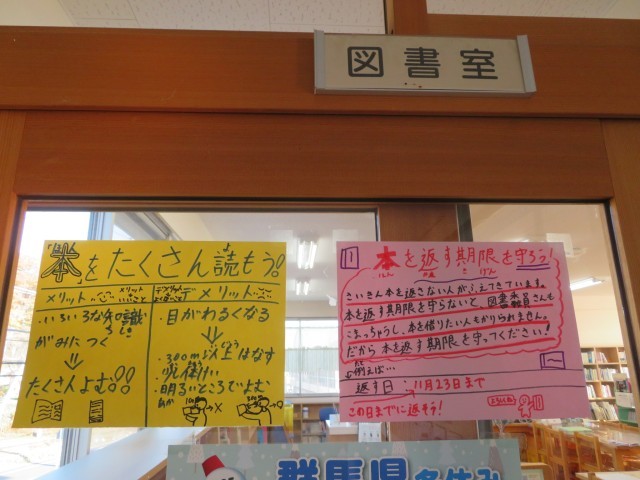 図書室
「本」をたくさん読もう!
メリット
デメリット
いろいろな知識
がみにつく
たくさんよむ!!
目がわるくなる
30cm以上はなす
明るいところでよむ
本を返す期限を守ろう!
さいきん本を返さない人がふえてきています。
本を返す期限を守らないと、図書委員さんも
こまっちゃうし、本を借りたい人もかりられません。
だから本を返す期限を守ってください!
例えば…
返す日:11月23日まで
この日までに返そう!
群馬県